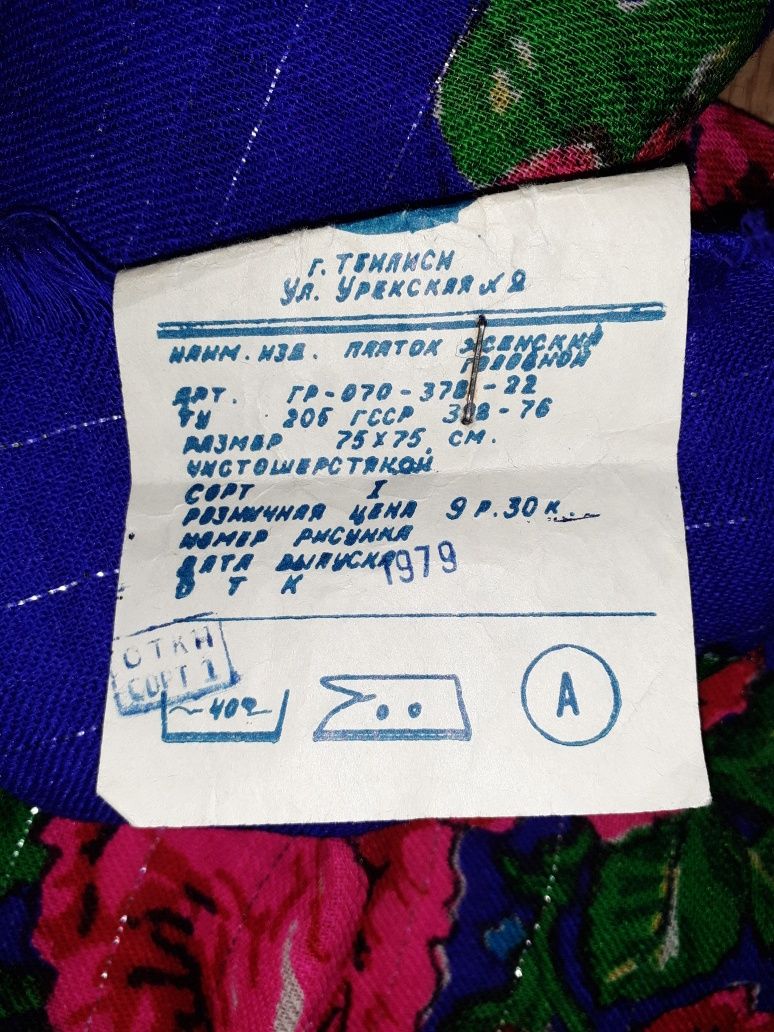 г. ТБИЛИСИ
УЛ. УРЕКСКАЯ № 8
НАИМ. ИЗД. ПЛАТОК ЖЕНСКИЙ
ГОЛОВНОЙ
АРТ. ГР-070-378-22
ТУ 205 ГССР 328-76
РАЗМЕР 75X75 СМ.
ЧИСТОШЕРСТЯНОЙ
СОРТ I
РОЗНИЧНАЯ ЦЕНА 9 Р. 30 К.
НОМЕР РИСУНКА
ДАТА ВЫПУСКА 1979
О Т К
ОТКН
СОРТ 1
40°
А